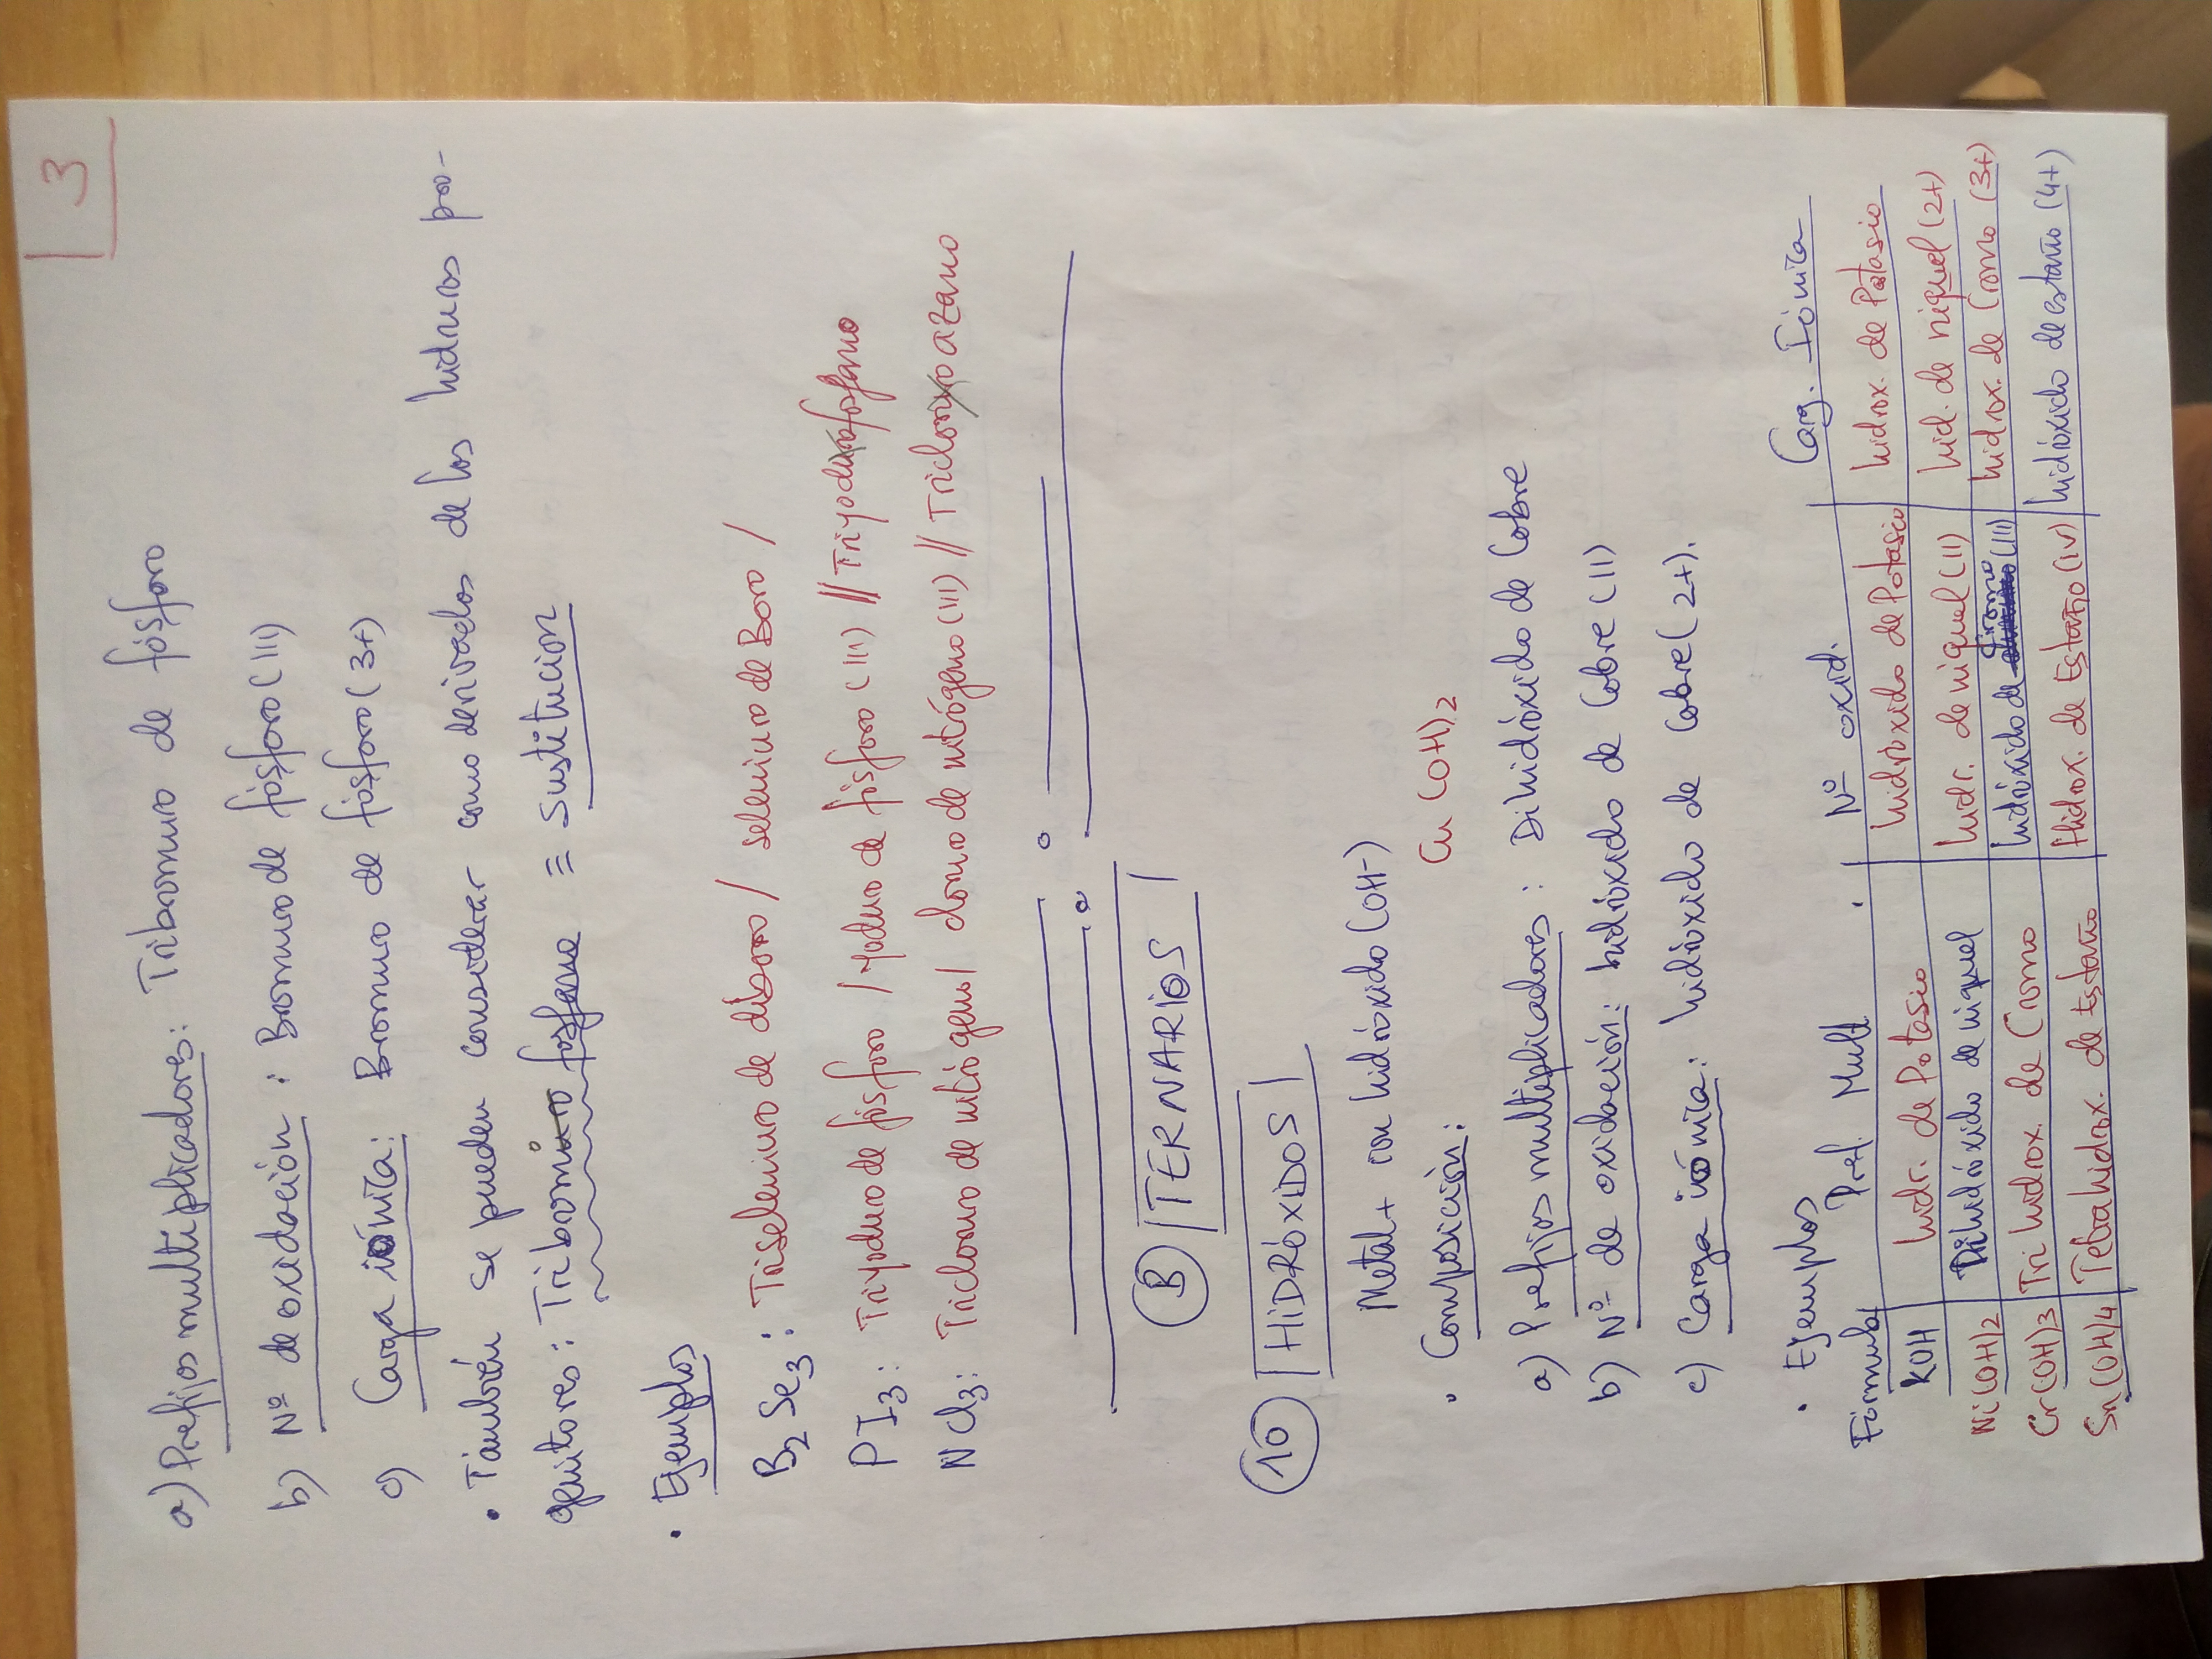 3
a) Prefijos multiplicadores: Tribromuro de fósforo
b) Nº de oxidación: Bromuro de fósforo (III)
c) Carga iónica: Bromuro de fósforo (3+)
• También se pueden considerar como derivados de los hidruros pro-
genitores: Tribromuro fosfano ≡ Sustitucion
• Ejemplos
B2 Se3: Triseleniuro de diboro / seleniuro de Boro /
P I3: Triyoduro de fósforo / Yoduro de fósforo (III) // Triyodurofosfano
N Cl3: Tricloruro de nitrógeno / cloruro de nitrógeno (III) // Tricloroxoazano
B) TERNARIOS
10 HIDRÓXIDOS
Metal + con hidróxido (OH-)
• Composición: Cu (OH)2
a) Prefijos multiplicadores: Dihidróxido de Cobre
b) Nº de oxidación: hidróxido de Cobre (II)
c) Carga iónica: hidróxido de Cobre (2+).
• Ejemplos
Fórmula Pref. Mult. Nº oxid. Carg. Iónica
KOH hidr. de Potasio hidróxido de Potasio hidrox. de Potasio
Ni(OH)2 Dihidróxido de niquel hidr. de niquel (II) hid. de niquel (2+)
Cr(OH)3 Trihidrox. de Cromo hidróxido de Cromo (III) hidrox. de Cromo (3+)
Sn(OH)4 Tetrahidrox. de Estaño Hidrox. de Estaño (IV) hidróxido de estaño (4+)